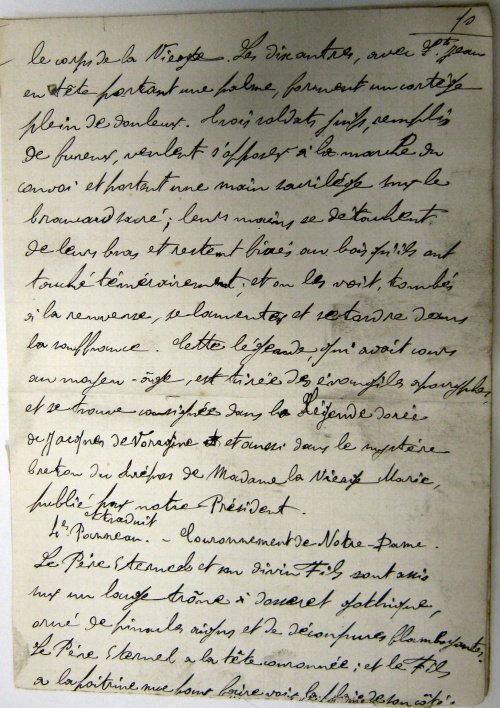 10
le corps de la Vierge. Les dix autres, avec St. Jean
en tête portant une palme, forment un cortège
plein de douleur. Trois soldats juifs, remplis
de fureur, veulent s'opposer à la marche du
convoi et portent une main sacrilége sur le
brancard sacré; leurs mains se détachent
de leurs bras et restent fixés au bois qu'ils ont
touché témérairement; et on les voit, tombés
à la renverse, se lamenter et se tordre dans
la souffrance. Cette légende, qui avait cours
au moyen-âge, est tirée des évangiles apocryphes
et se trouve consignée dans la Légende dorée
de Jacques de Voragine et aussi dans le mystère
breton du trépas de Madame la Vierge Marie,
publié par notre Président.
et traduit
4e. Panneau. - Couronnement de Notre-Dame.
Le Père Eternel et son divin Fils sont assis
sur un large trône à dosseret gothique,
orné de pinacles aigus et de découpures flamboyantes.
Le Père Eternel a la tête couronnée; et le Fils
a la poitrine nue pour faire voir la plaie de son côté.